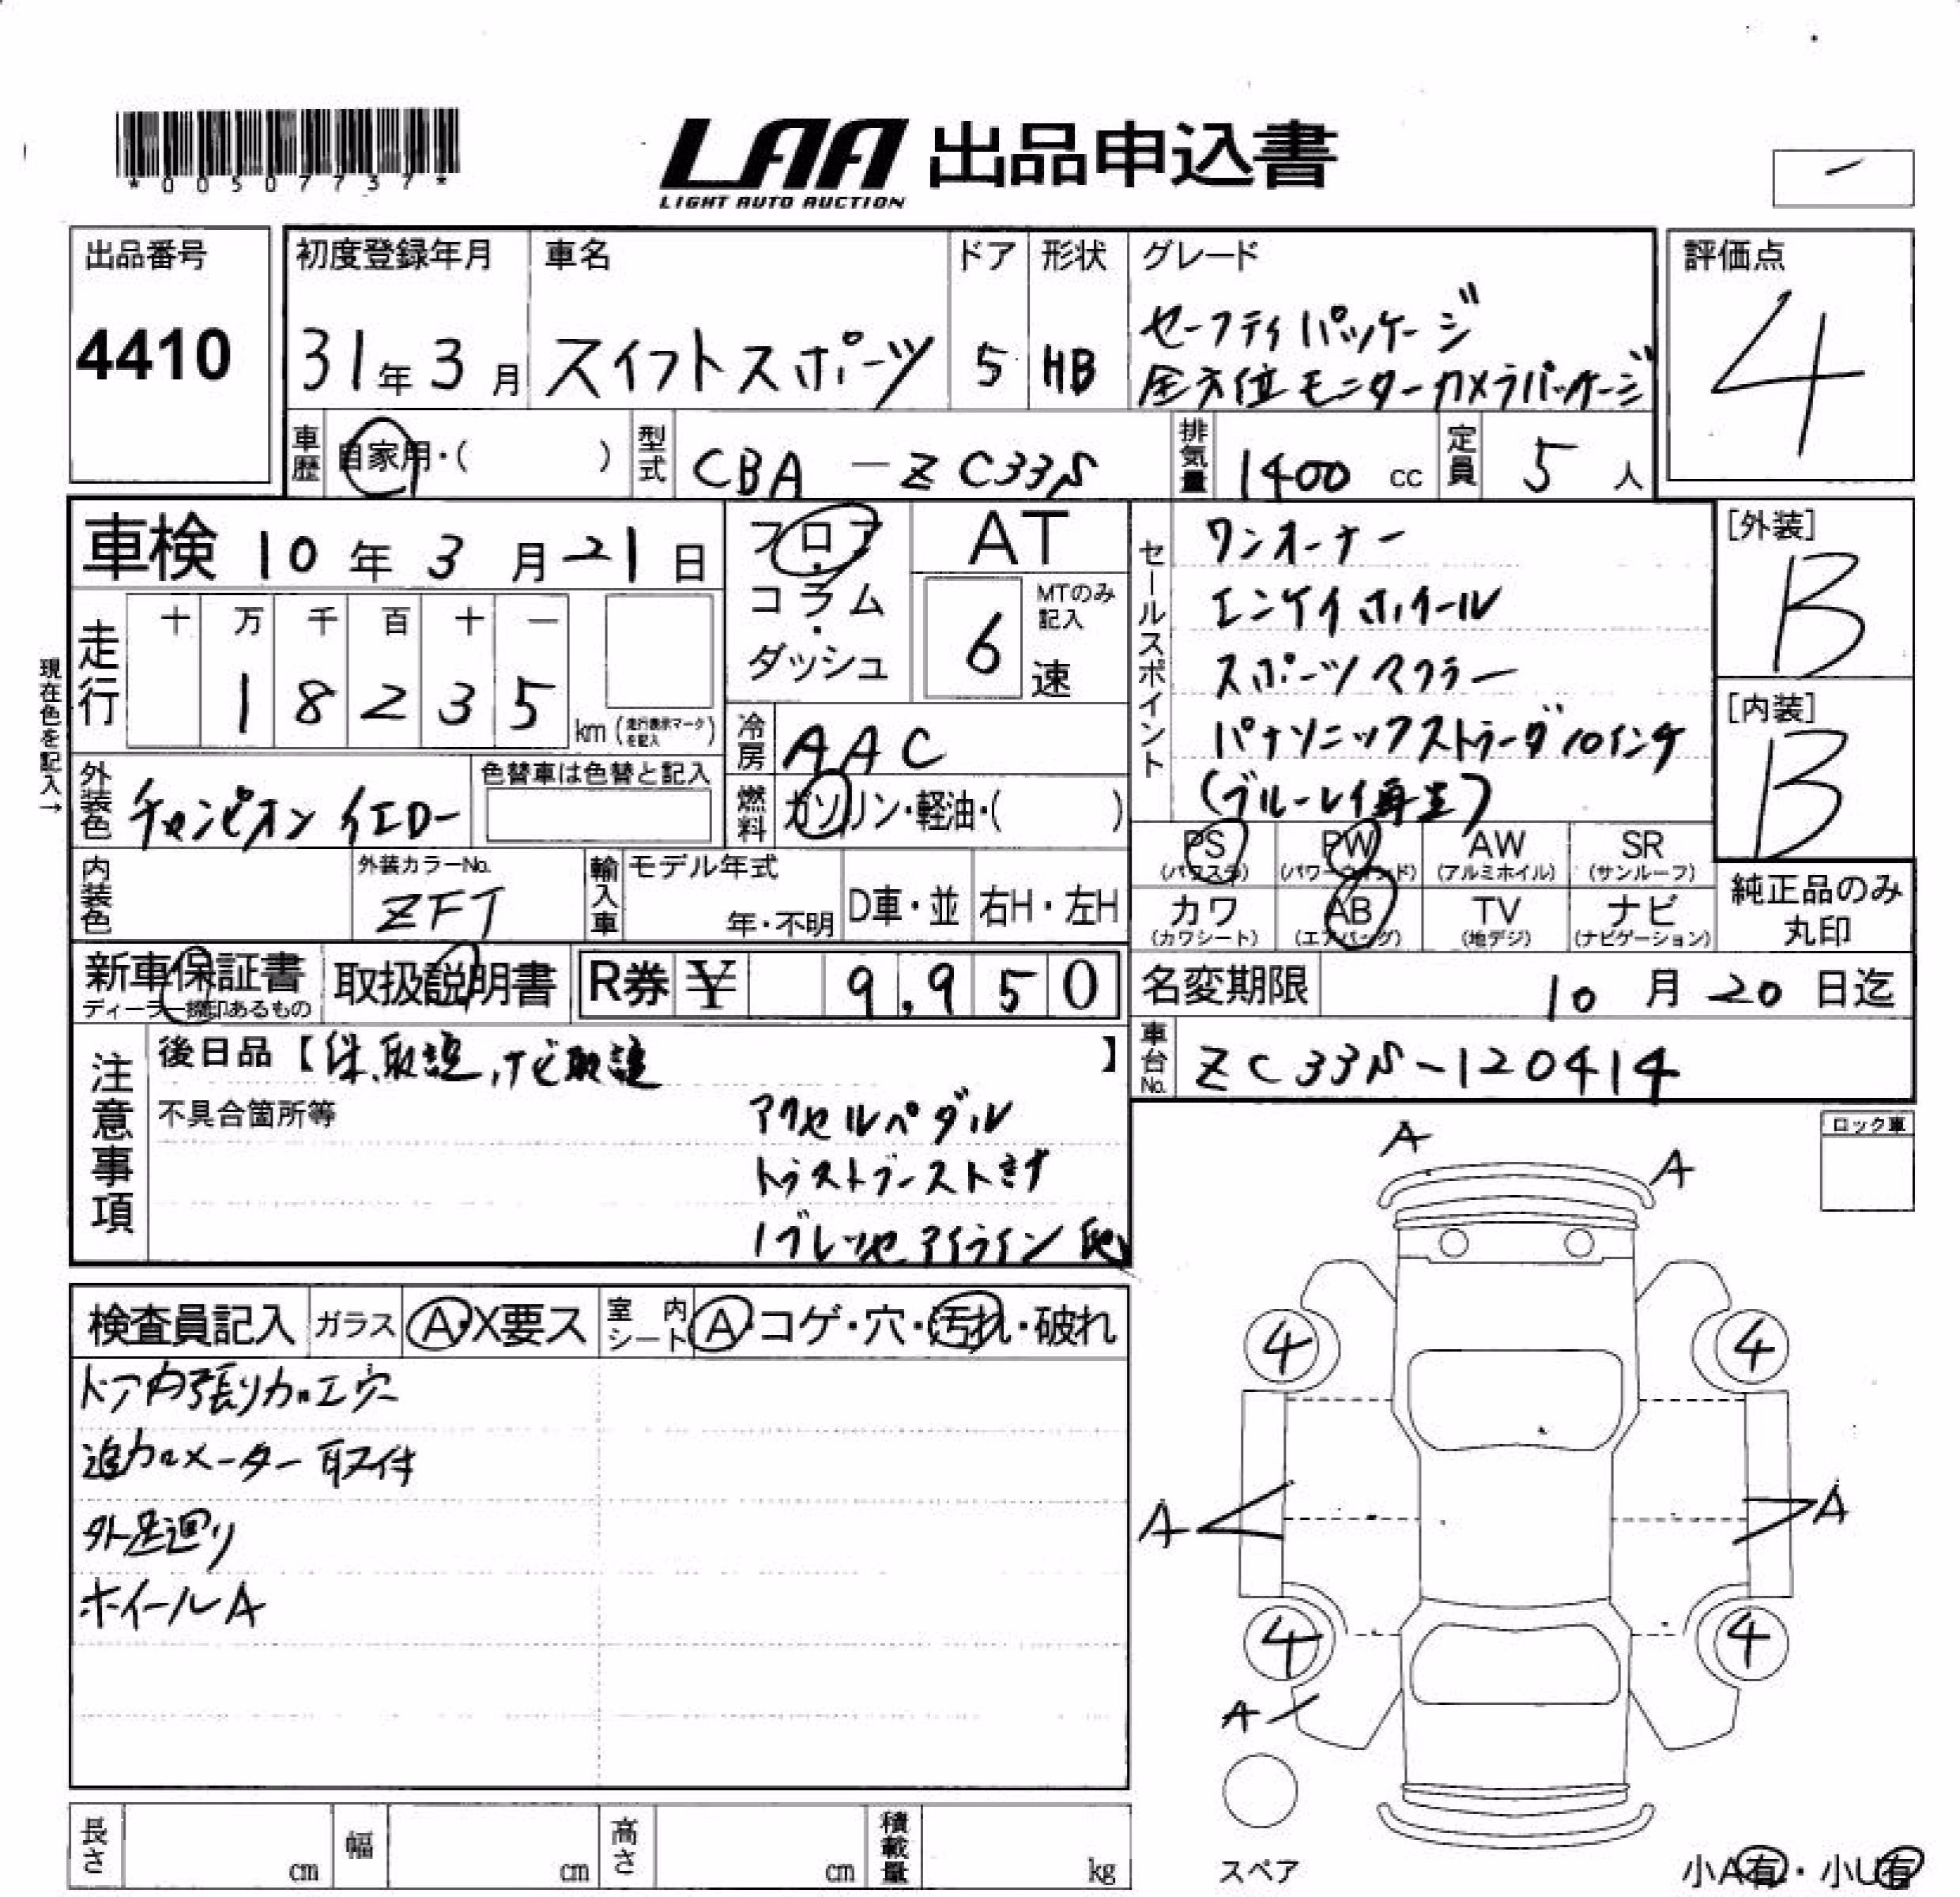 *00507737*
LAA 出品申込書
LIGHT AUTO AUCTION
出品番号
4410
初度登録年月
31年3月
車名
スイフトスポーツ
ドア
5
形状
HB
グレード
セーフティパッケージ
全方位モニターカメラパッケージ
評価点
4
車歴
自家用・( )
型式
CBA-ZC33S
排気量
1400 cc
定員
5 人
車検 10年3月21日
フロア・コラム・ダッシュ
AT
MTのみ記入
6 速
セールスポイント
ワンオーナー
エンケイホイール
スポーツマフラー
パナソニックストラーダ10インチ
(ブルーレイ再生)
[外装]
B
[内装]
B
現在色を記入→
走行
十 万 千 百 十 一
1 8 2 3 5 km (走行表示マークを記入)
冷房
AAC
外装色
チャンピオンイエロー
色替車は色替と記入
燃料
ガソリン・軽油・( )
PS (パワステ)
PW (パワーウインド)
AW (アルミホイル)
SR (サンルーフ)
内装色
外装カラーNo.
ZFT
輸入車
モデル年式
年・不明
D車・並
右H・左H
カワ (カワシート)
AB (エアバッグ)
TV (地デジ)
ナビ (ナビゲーション)
純正品のみ丸印
新車保証書
ディーラー捺印あるもの
取扱説明書
R券 ¥ 9,950
名変期限 10月20日迄
注意事項
後日品【保、取説、ナビ取説】
車台No.
ZC33S-120414
不具合箇所等
アクセルペダル
トラストブーストきず
ノブレッセアイライン 他
ロック車
A
A
検査員記入
ガラス
A・X要ス
室内シート
A・コゲ・穴・汚れ・破れ
ドア内張り加工穴
追加メーター取付
外足廻り
ホイールA
4
4
A
A
4
4
A
スペア
長さ cm
幅 cm
高さ cm
積載量 kg
小A有・小U有